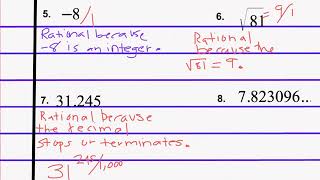 5. -8/1
Rational because
-8 is an integer.
6. √81 = 9/1
Rational
because the
√81 = 9.
7. 31.245
Rational because
the decimal
stops or terminates.
31 245/1,000
8. 7.823096...